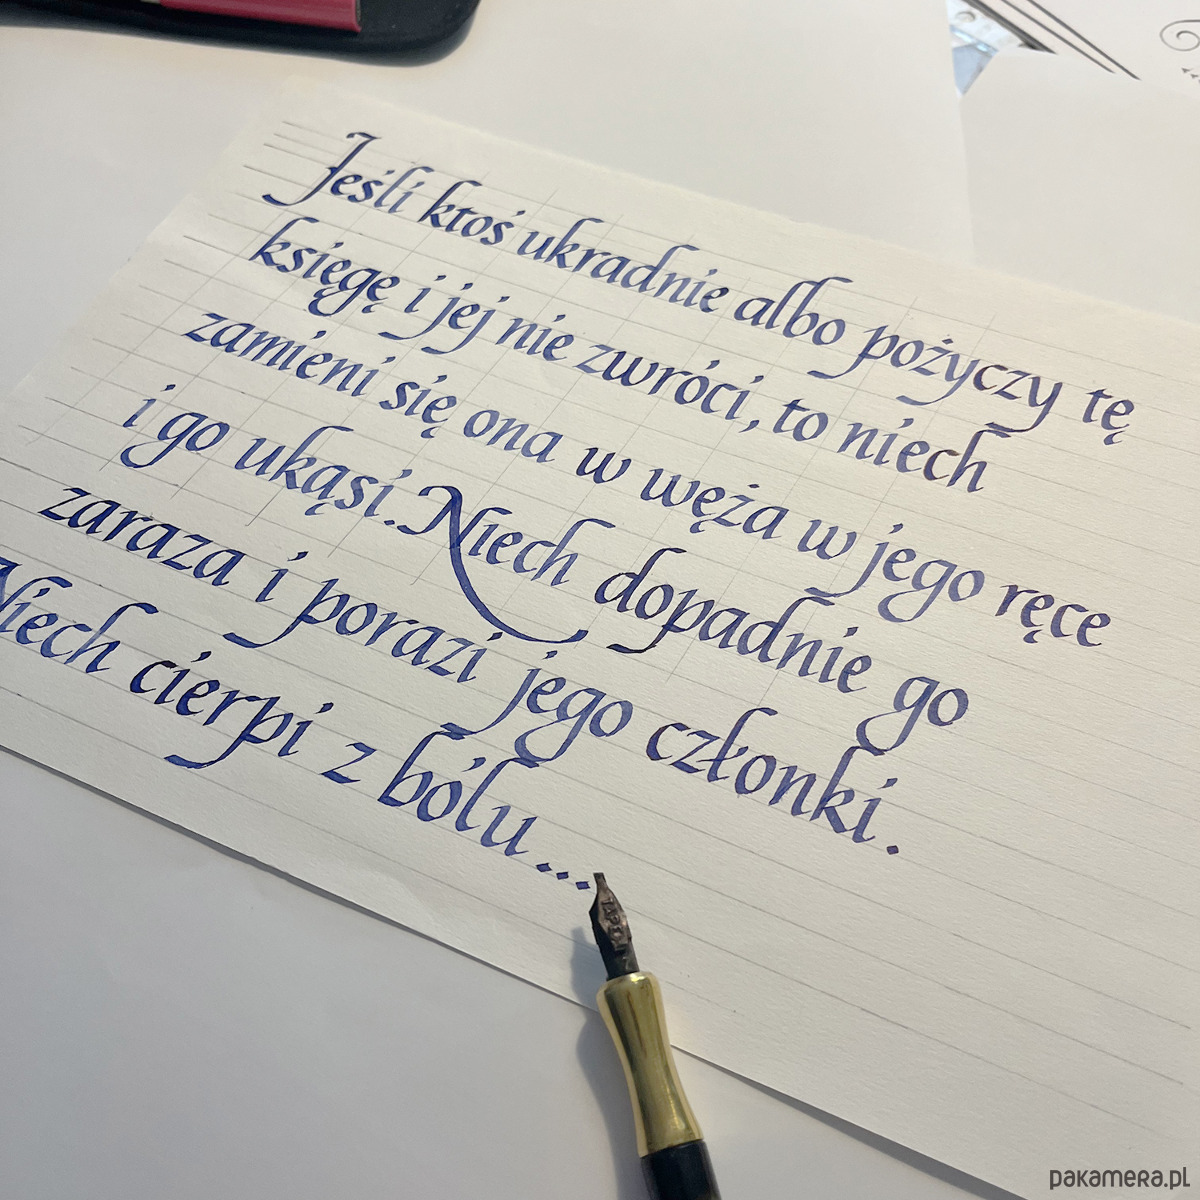 Jeśli ktoś ukradnie albo pożyczy tę
księgę i jej nie zwróci, to niech
zamieni się ona w węża w jego ręce
i go ukąsi. Niech dopadnie go
zaraza i porazi jego członki.
Niech cierpi z bólu...
pakamera.pl